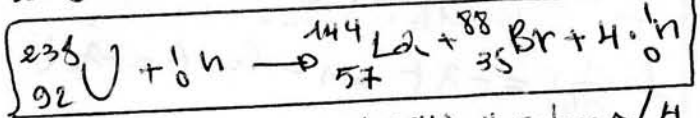 ²³⁸₉₂U + ¹₀n → ¹⁴⁴₅₇La + ⁸⁸₃₅Br + 4·¹₀n